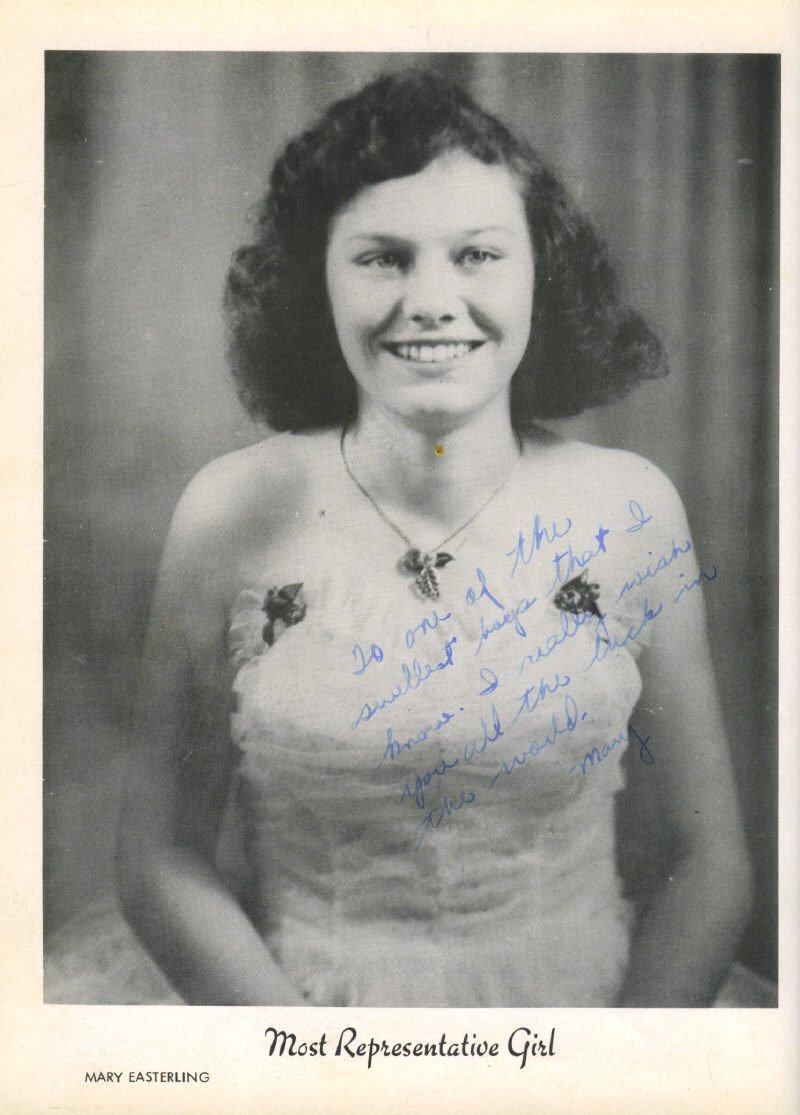 To one of the
swellest boys that I
know. I really wish
you all the luck in
the world.
Mary
Most Representative Girl
MARY EASTERLING